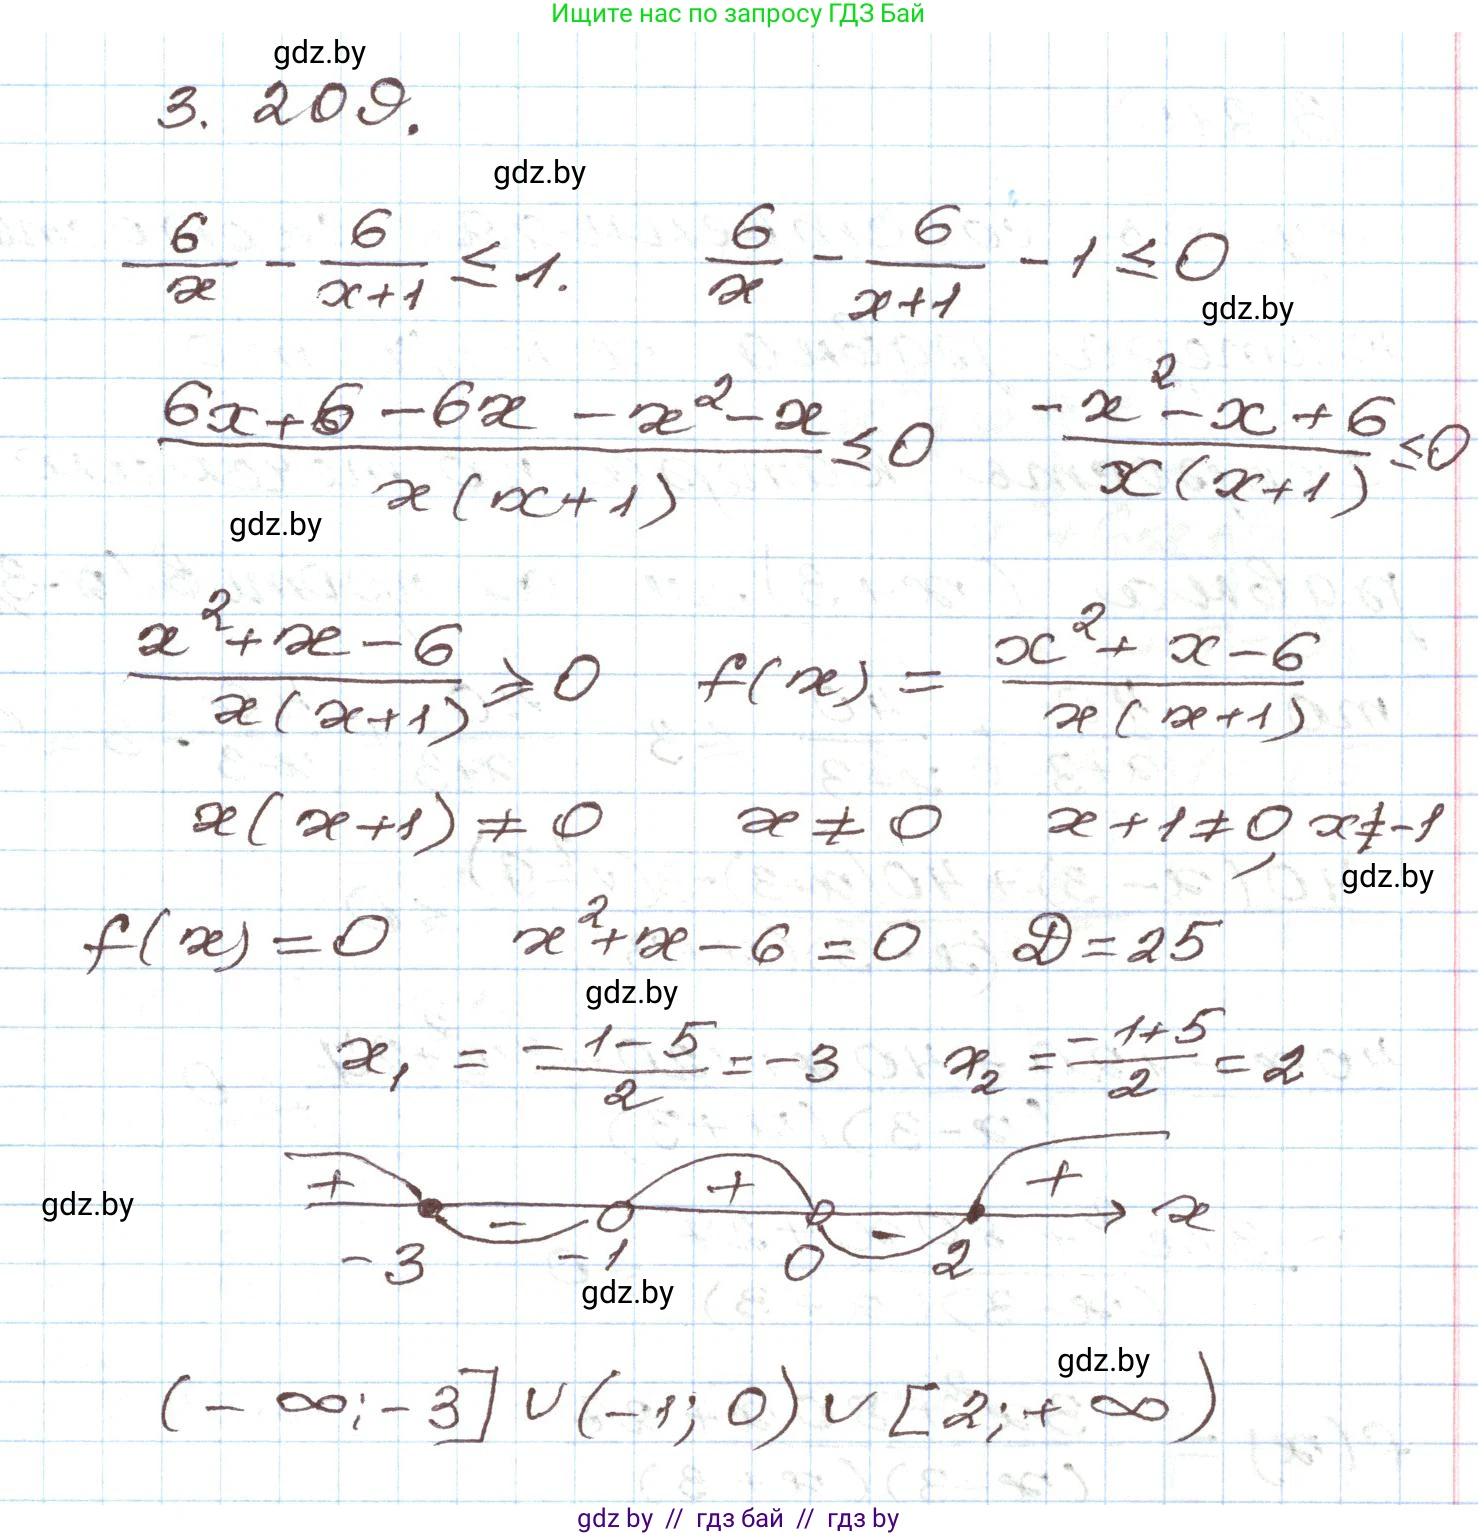 Ищите нас по запросу ГДЗ Бай
gdz.by
3. 209.
gdz.by
6/x - 6/(x+1) ≤ 1. 6/x - 6/(x+1) - 1 ≤ 0
gdz.by
(6x+6-6x-x²-x)/(x(x+1)) ≤ 0 (-x²-x+6)/(x(x+1)) ≤ 0
gdz.by
(x²+x-6)/(x(x+1)) ≥ 0 f(x) = (x²+x-6)/(x(x+1))
x(x+1) ≠ 0 x ≠ 0 x+1 ≠ 0, x ≠ -1
gdz.by
f(x) = 0 x²+x-6 = 0 D = 25
gdz.by
x₁ = (-1-5)/2 = -3 x₂ = (-1+5)/2 = 2
+ - + - + x
gdz.by
-3 -1 0 2
gdz.by
gdz.by
(-∞;-3] ∪ (-1; 0) ∪ [2;+∞)
gdz by // гдз бай // гдз by